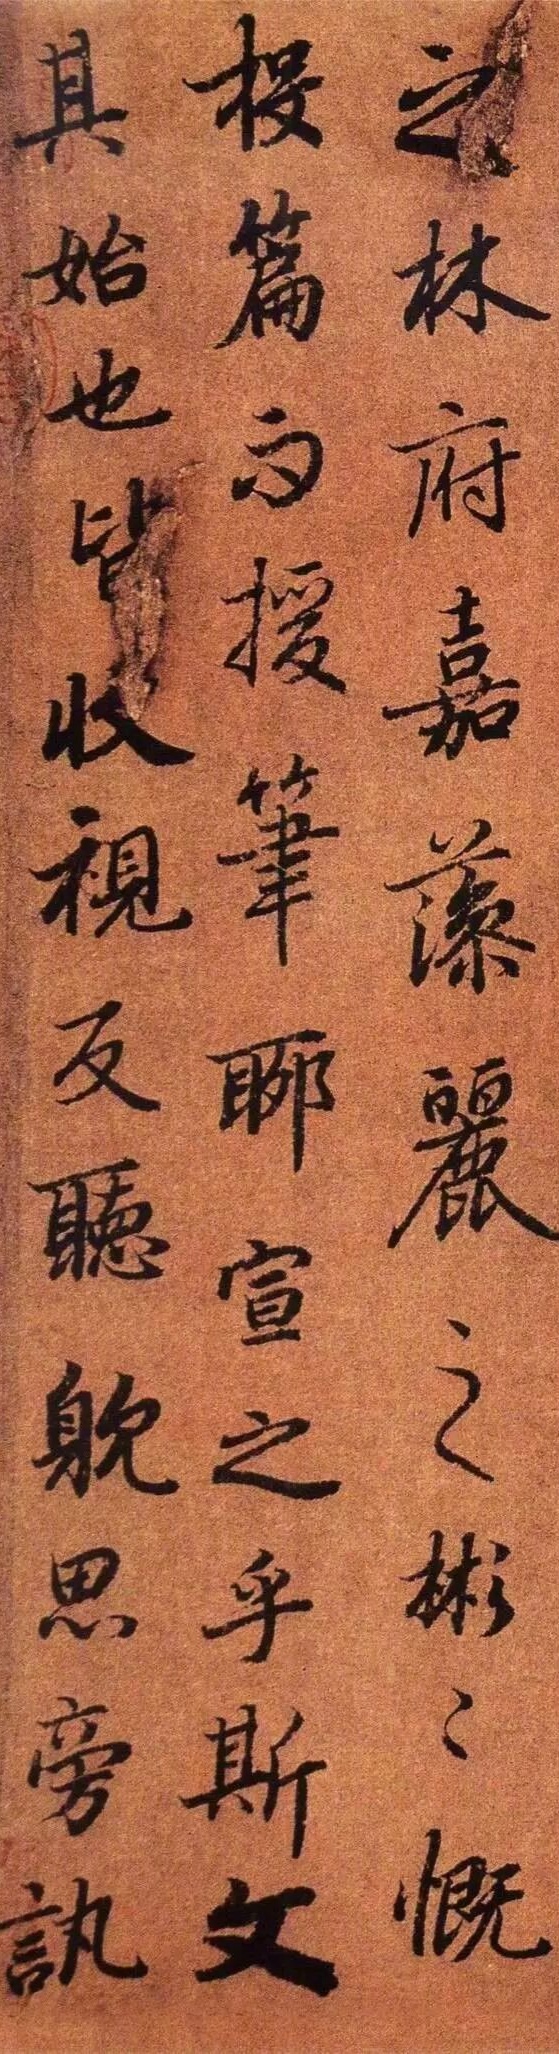 之林府嘉藻麗之彬〻慨
投篇而授筆聊宣之乎斯文
其始也皆收視反聽躭思旁訊